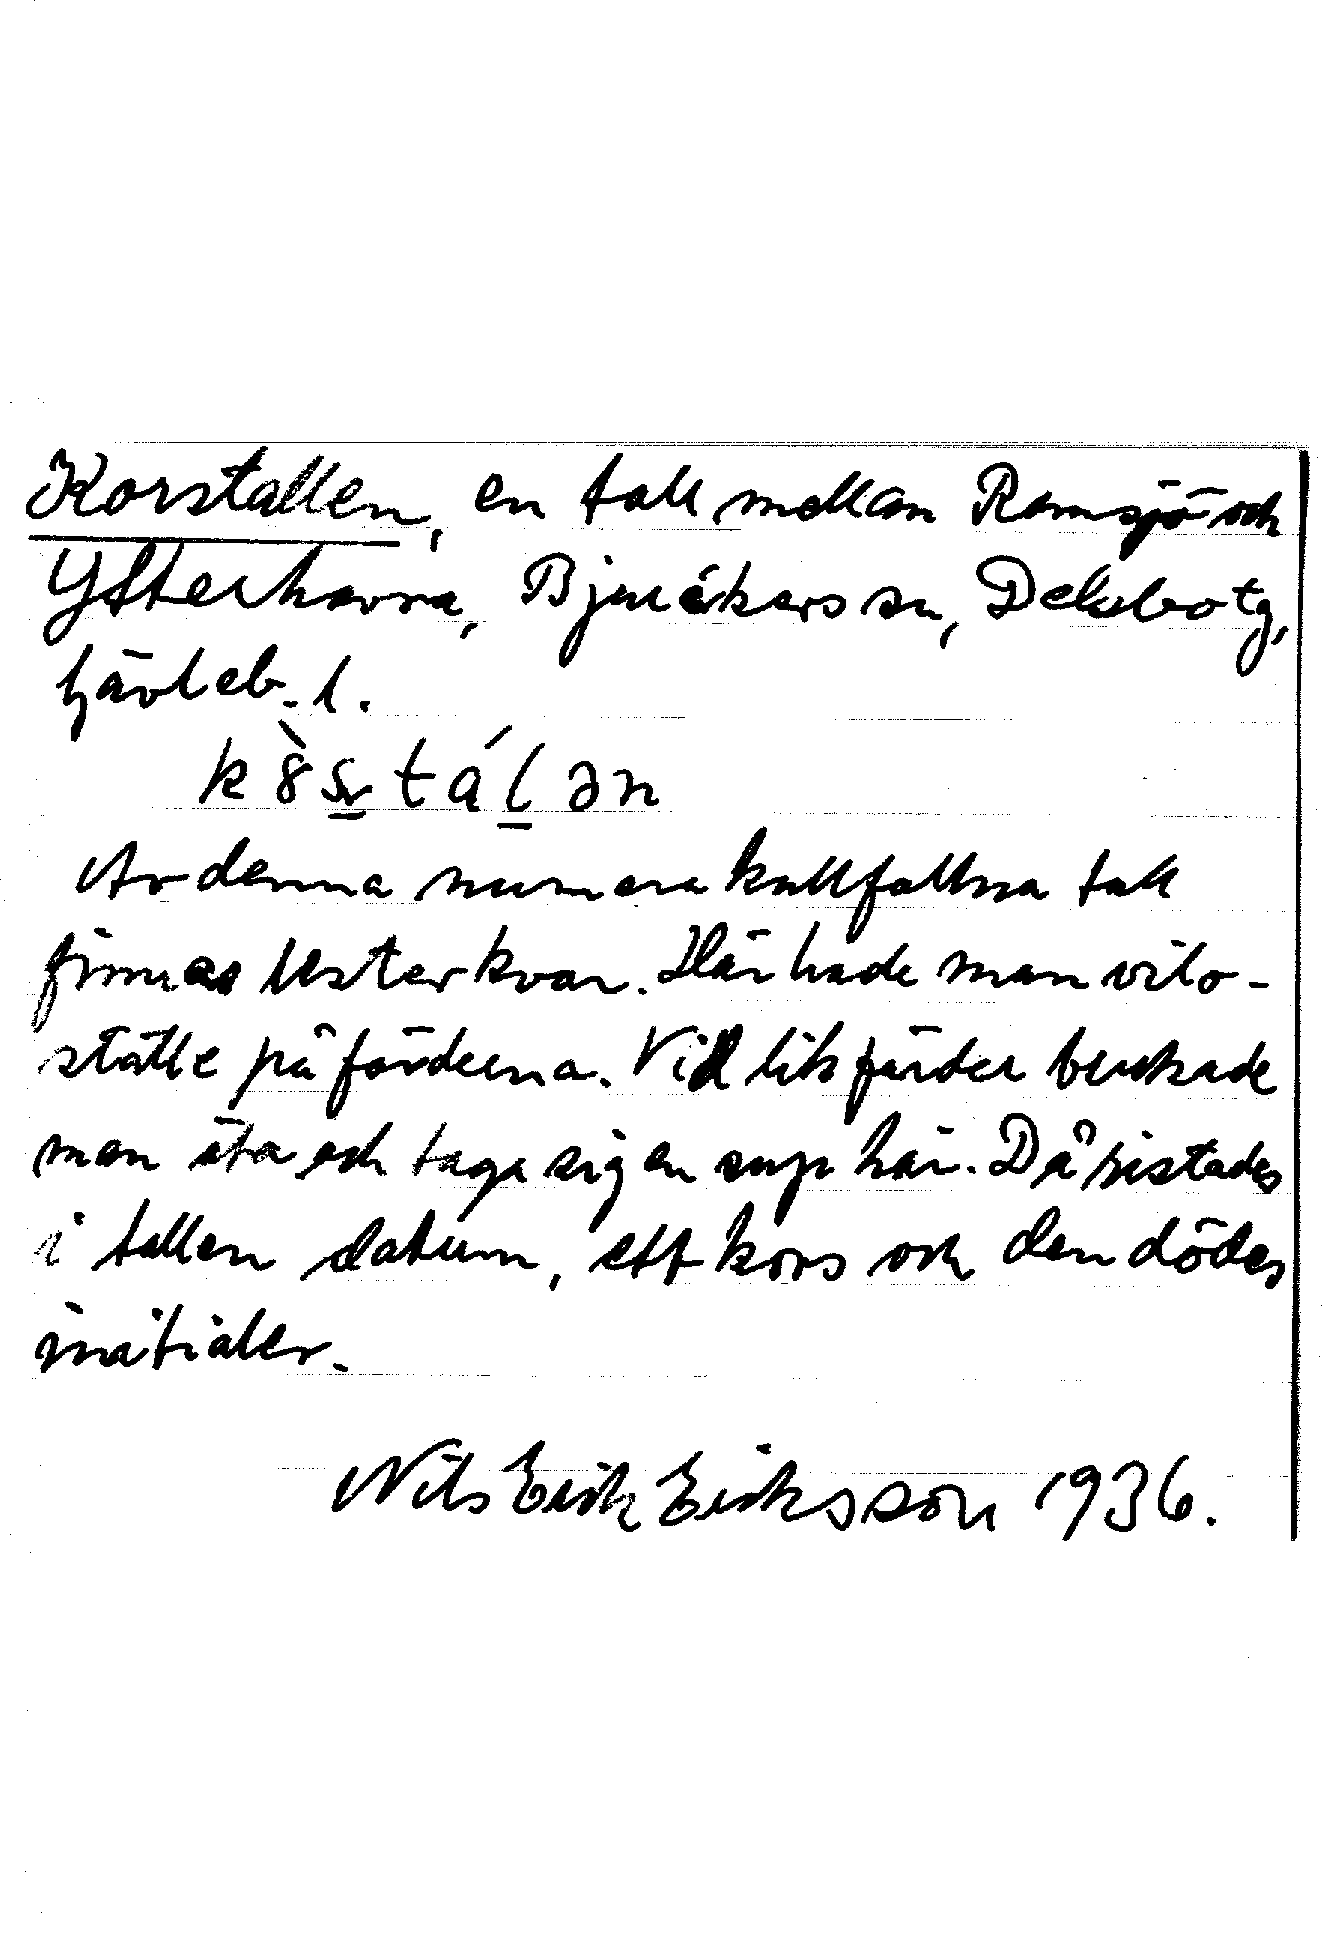 Korstallen, en tall mellan Ramsjö och
Ytterhavra, Bjuråkers sn, Delsbo tg,
Gävleb. l.
Av denna numera kullfallna tall
finnas rester kvar. Här hade man vilo-
ställe på färderna. Vid likfärder brukade
man äta och taga sig en sup här. Då ristades
i tallen datum, ett kors och den dödes
initialer.
Nils Erik Eriksson 1936.